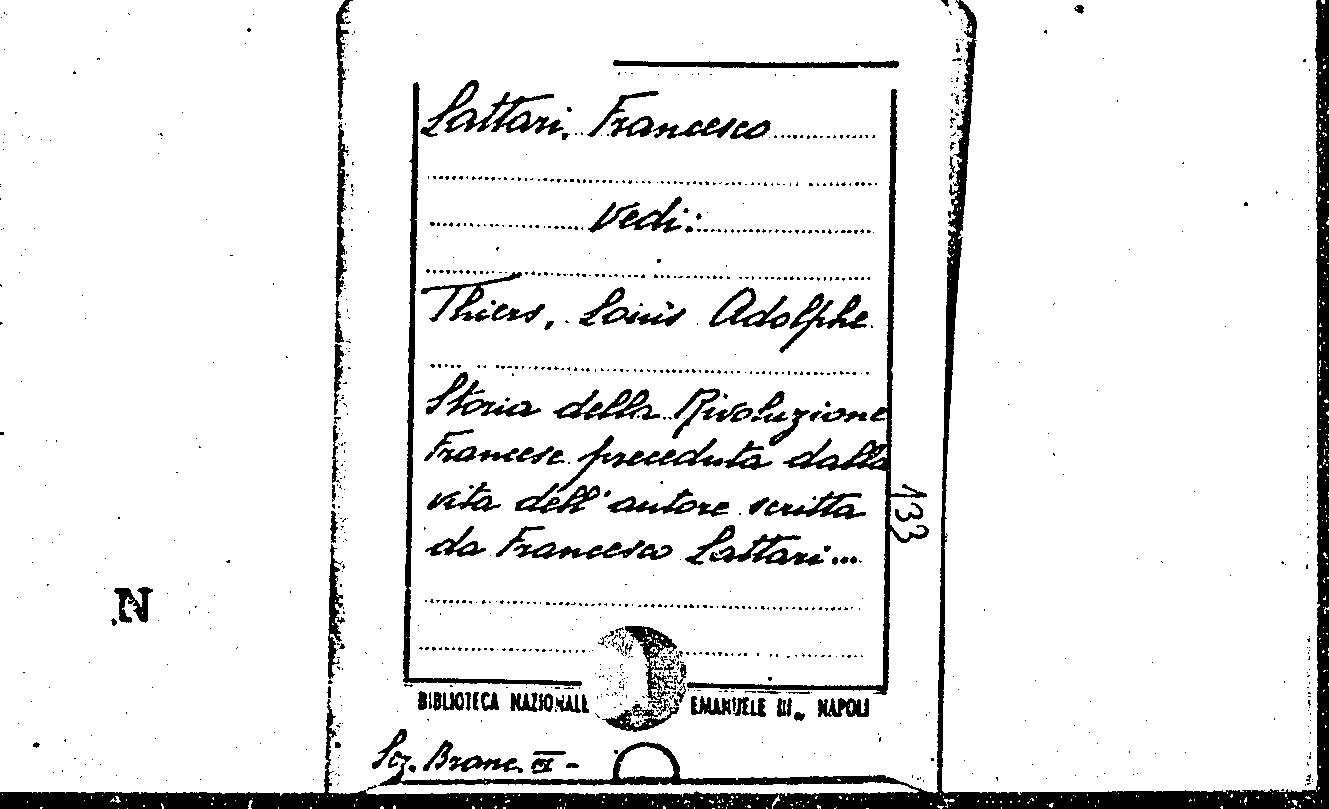 Lattari, Francesco
Vedi:
Thiers, Louis Adolphe
Storia della Rivoluzione
Francese preceduta dalla
vita dell'autore scritta
da Francesco Lattari...
133
N
BIBLIOTECA NAZIONALE EMANUELE III., NAPOLI
Sez. Branc.